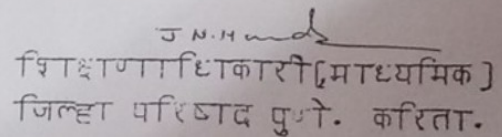 शिक्षणाधिकारी(माध्यमिक)
जिल्हा परिषद पुणे. करिता.